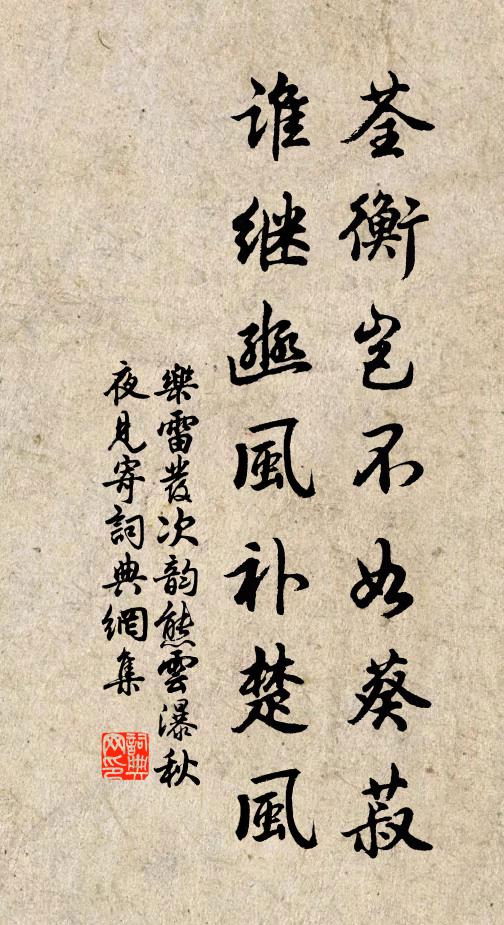 荃衡岂不如葵菽
谁继豳風补楚風
樂雷發次韵熊雲瀑秋
夜見寄詞典網集
詞典
网印